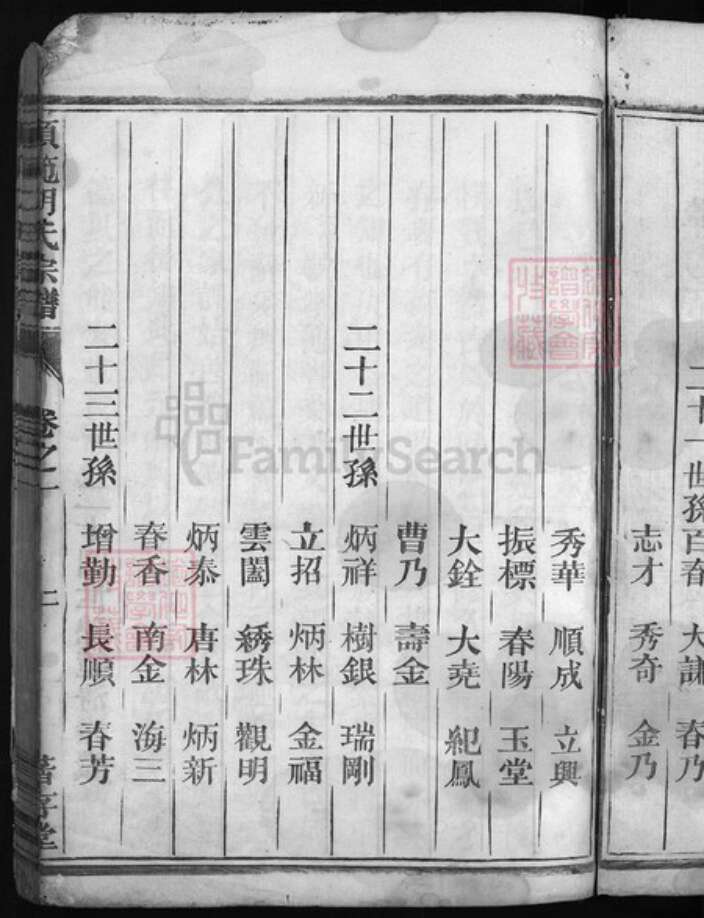 二十一世孫 百春 大謙 春乃
志才 秀奇 金乃
秀華 順成 立興
振標 春陽 玉堂
大銓 大堯 紀鳳
曹乃 壽金
二十二世孫 炳祥 樹銀 瑞剛
立招 炳林 金福
雲闔 綉珠 觀明
炳泰 唐林 炳新
春香 南金 海三
二十三世孫 增勤 長順 春芳
胡氏宗譜 卷之二 二
FamilySearch